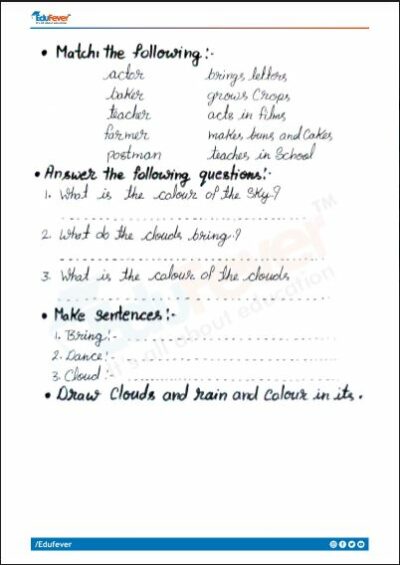 EduFever
• Match: the following:-
actor brings letters
baker grows Crops
teacher acts in films
farmer makes buns and Cakes
postman teaches in School
• Answer the following questions:-
1. What is the colour of the Sky?
2. What do the clouds bring?
3. What is the colour of the clouds
• Make sentences:-
1. Bring:-
2. Dance:-
3. Cloud:-
• Draw Clouds and rain and Colour in its.
EduFever™
it's all about education
/Edufever